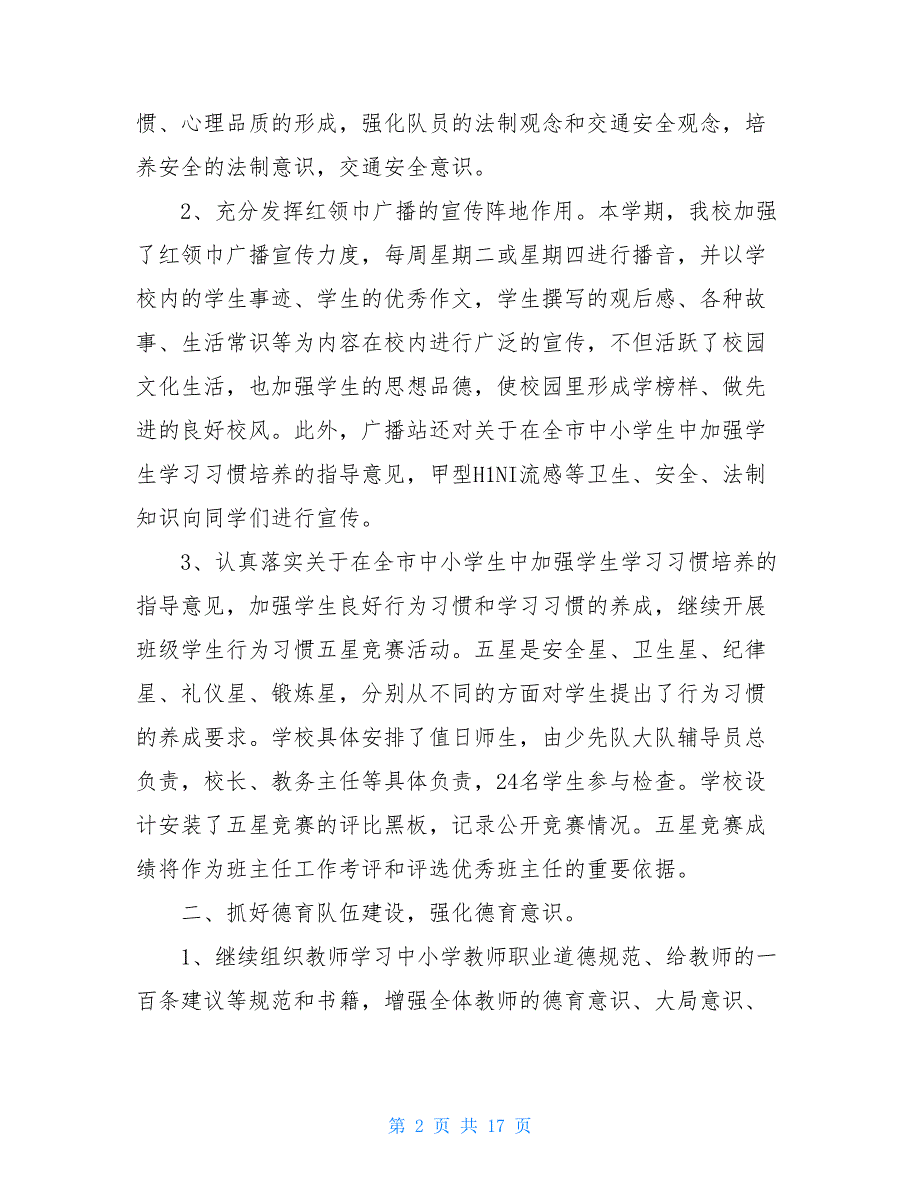 惯、心理品质的形成，强化队员的法制观念和交通安全观念，培
养安全的法制意识，交通安全意识。
2、充分发挥红领巾广播的宣传阵地作用。本学期，我校加强
了红领巾广播宣传力度，每周星期二或星期四进行播音，并以学
校内的学生事迹、学生的优秀作文，学生撰写的观后感、各种故
事、生活常识等为内容在校内进行广泛的宣传，不但活跃了校园
文化生活，也加强学生的思想品德，使校园里形成学榜样、做先
进的良好校风。此外，广播站还对关于在全市中小学生中加强学
生学习习惯培养的指导意见，甲型H1NI流感等卫生、安全、法制
知识向同学们进行宣传。
3、认真落实关于在全市中小学生中加强学生学习习惯培养的
指导意见，加强学生良好行为习惯和学习习惯的养成，继续开展
班级学生行为习惯五星竞赛活动。五星是安全星、卫生星、纪律
星、礼仪星、锻炼星，分别从不同的方面对学生提出了行为习惯
的养成要求。学校具体安排了值日师生，由少先队大队辅导员总
负责，校长、教务主任等具体负责，24名学生参与检查。学校设
计安装了五星竞赛的评比黑板，记录公开竞赛情况。五星竞赛成
绩将作为班主任工作考评和评选优秀班主任的重要依据。
二、抓好德育队伍建设，强化德育意识。
1、继续组织教师学习中小学教师职业道德规范、给教师的一
百条建议等规范和书籍，增强全体教师的德育意识、大局意识、
第 2 页 共 17 页